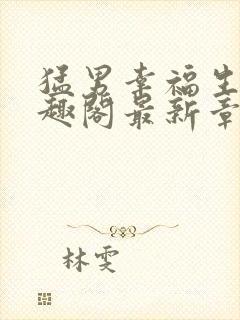 猛男幸福生
趣阁最新章
林雯